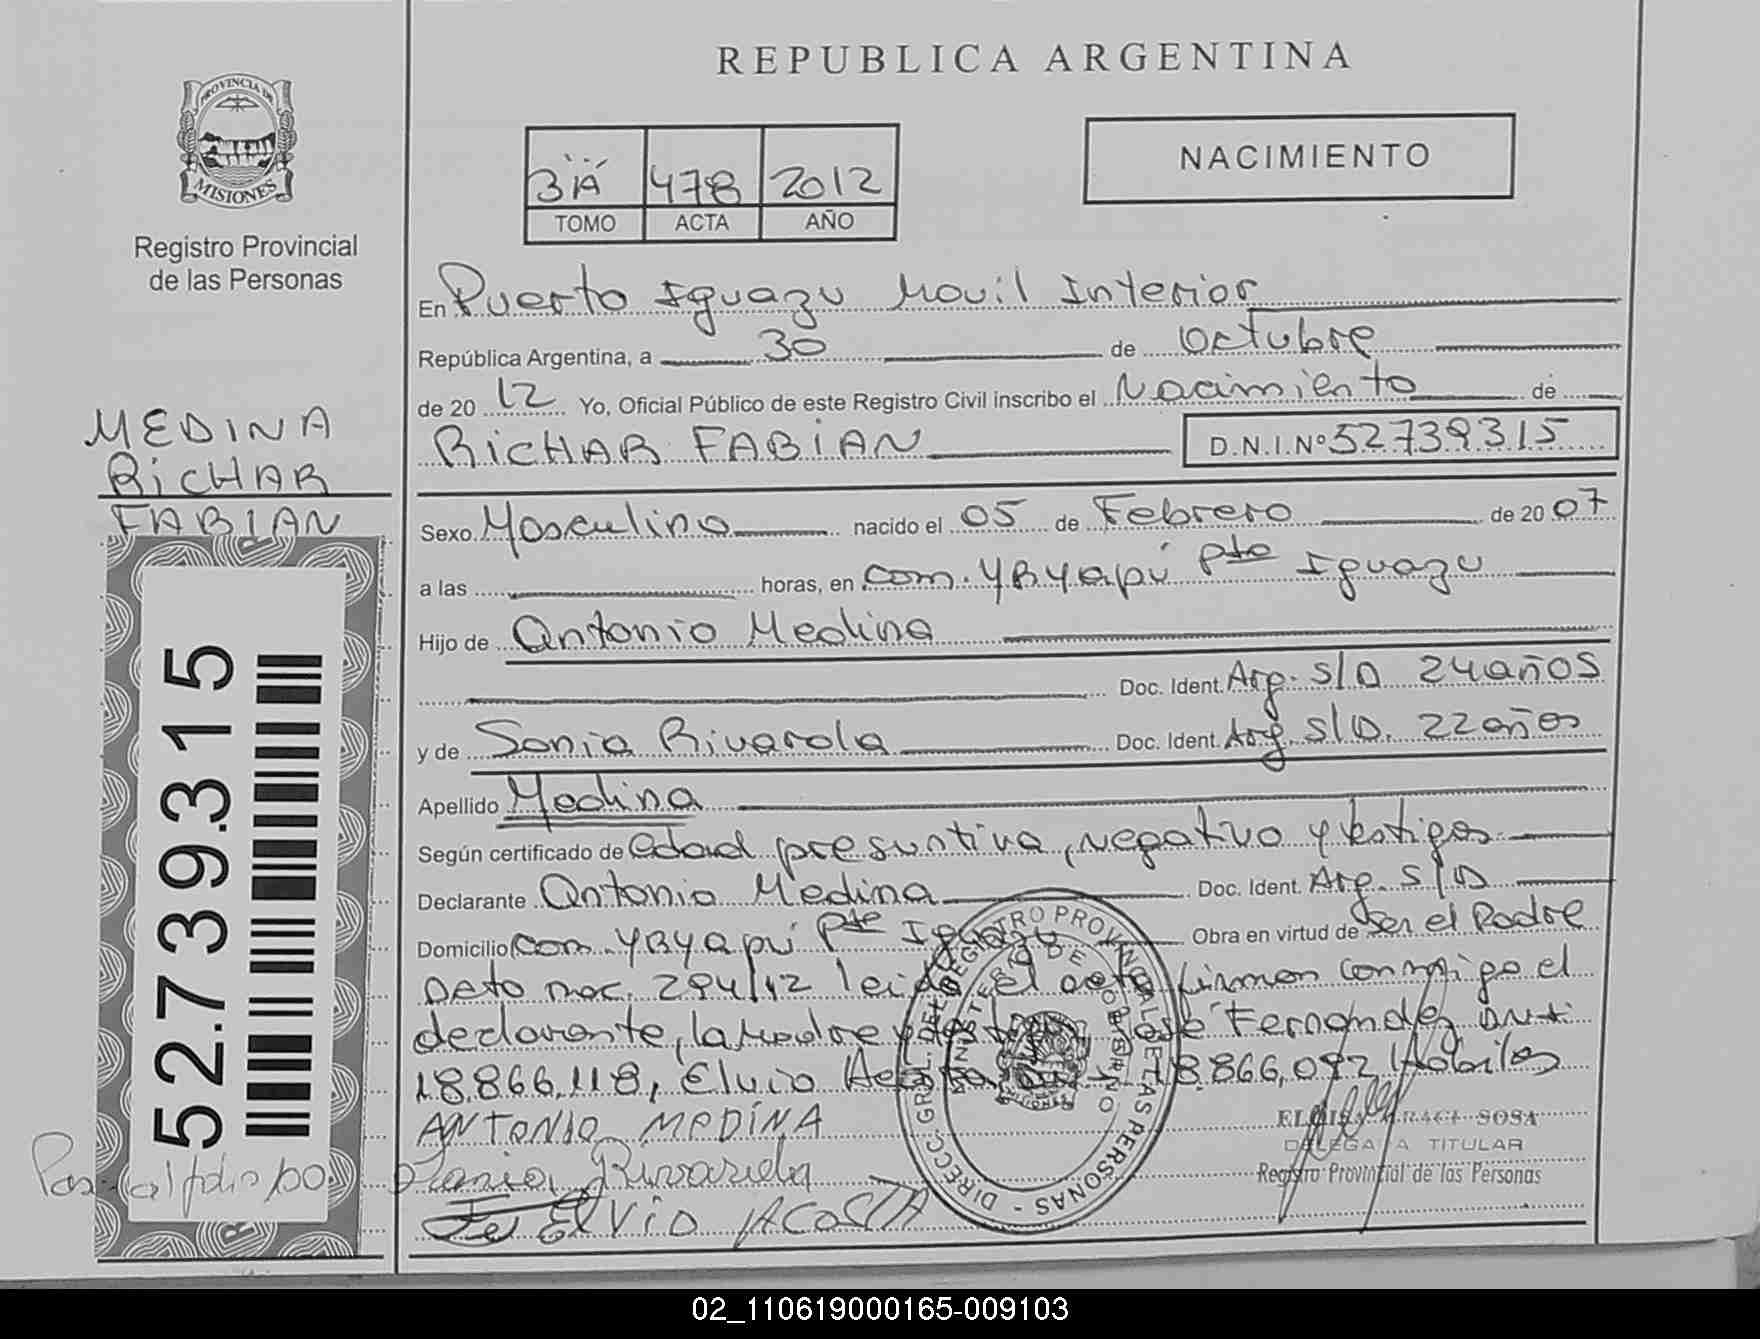 REPUBLICA ARGENTINA
PROVINCIA DE
MISIONES
Registro Provincial
de las Personas
3 iA 478 2012
TOMO ACTA AÑO
NACIMIENTO
En Puerto Iguazu Movil Interior
República Argentina, a 30 de Octubre
de 20 12 Yo, Oficial Público de este Registro Civil inscribo el Nacimiento de
RiCHAR FABiAN D.N.I.Nº 52739315
MEDINA
RiCHAR
FABIAN
Sexo Masculino nacido el 05 de Febrero de 20 07
a las horas, en Com. YRYapú Pto Iguazu
Hijo de Antonio Medina
Doc. Ident. Arg. S/D 24 años
y de Sonia Rivarola Doc. Ident. Arg. S/D. 22 años
Apellido Medina
Según certificado de edad presuntiva, negativo y testigos
Declarante Antonio Medina Doc. Ident. Arg. S/D
Domicilio Com. YRYapú Pto Iguazu Obra en virtud de Ser el Padre
Dcto nac. 294/12 leida el acta firman conmigo el
declarante, la Madre y José Fernandez DNI
18.866.118, Elvio Acosta 18.866,092 Habiles
ANTONIO MEDINA
Sonia Rivarola
ELVIO ACOSTA
52.739.315
Pas al folio 100
DIRECC. GRAL. DEL REGISTRO PROVINCIAL DE LAS PERSONAS
MINISTERIO DE GOBIERNO
MISIONES
SOSA
DELEGADA TITULAR
Registro Provincial de las Personas
02_110619000165-009103